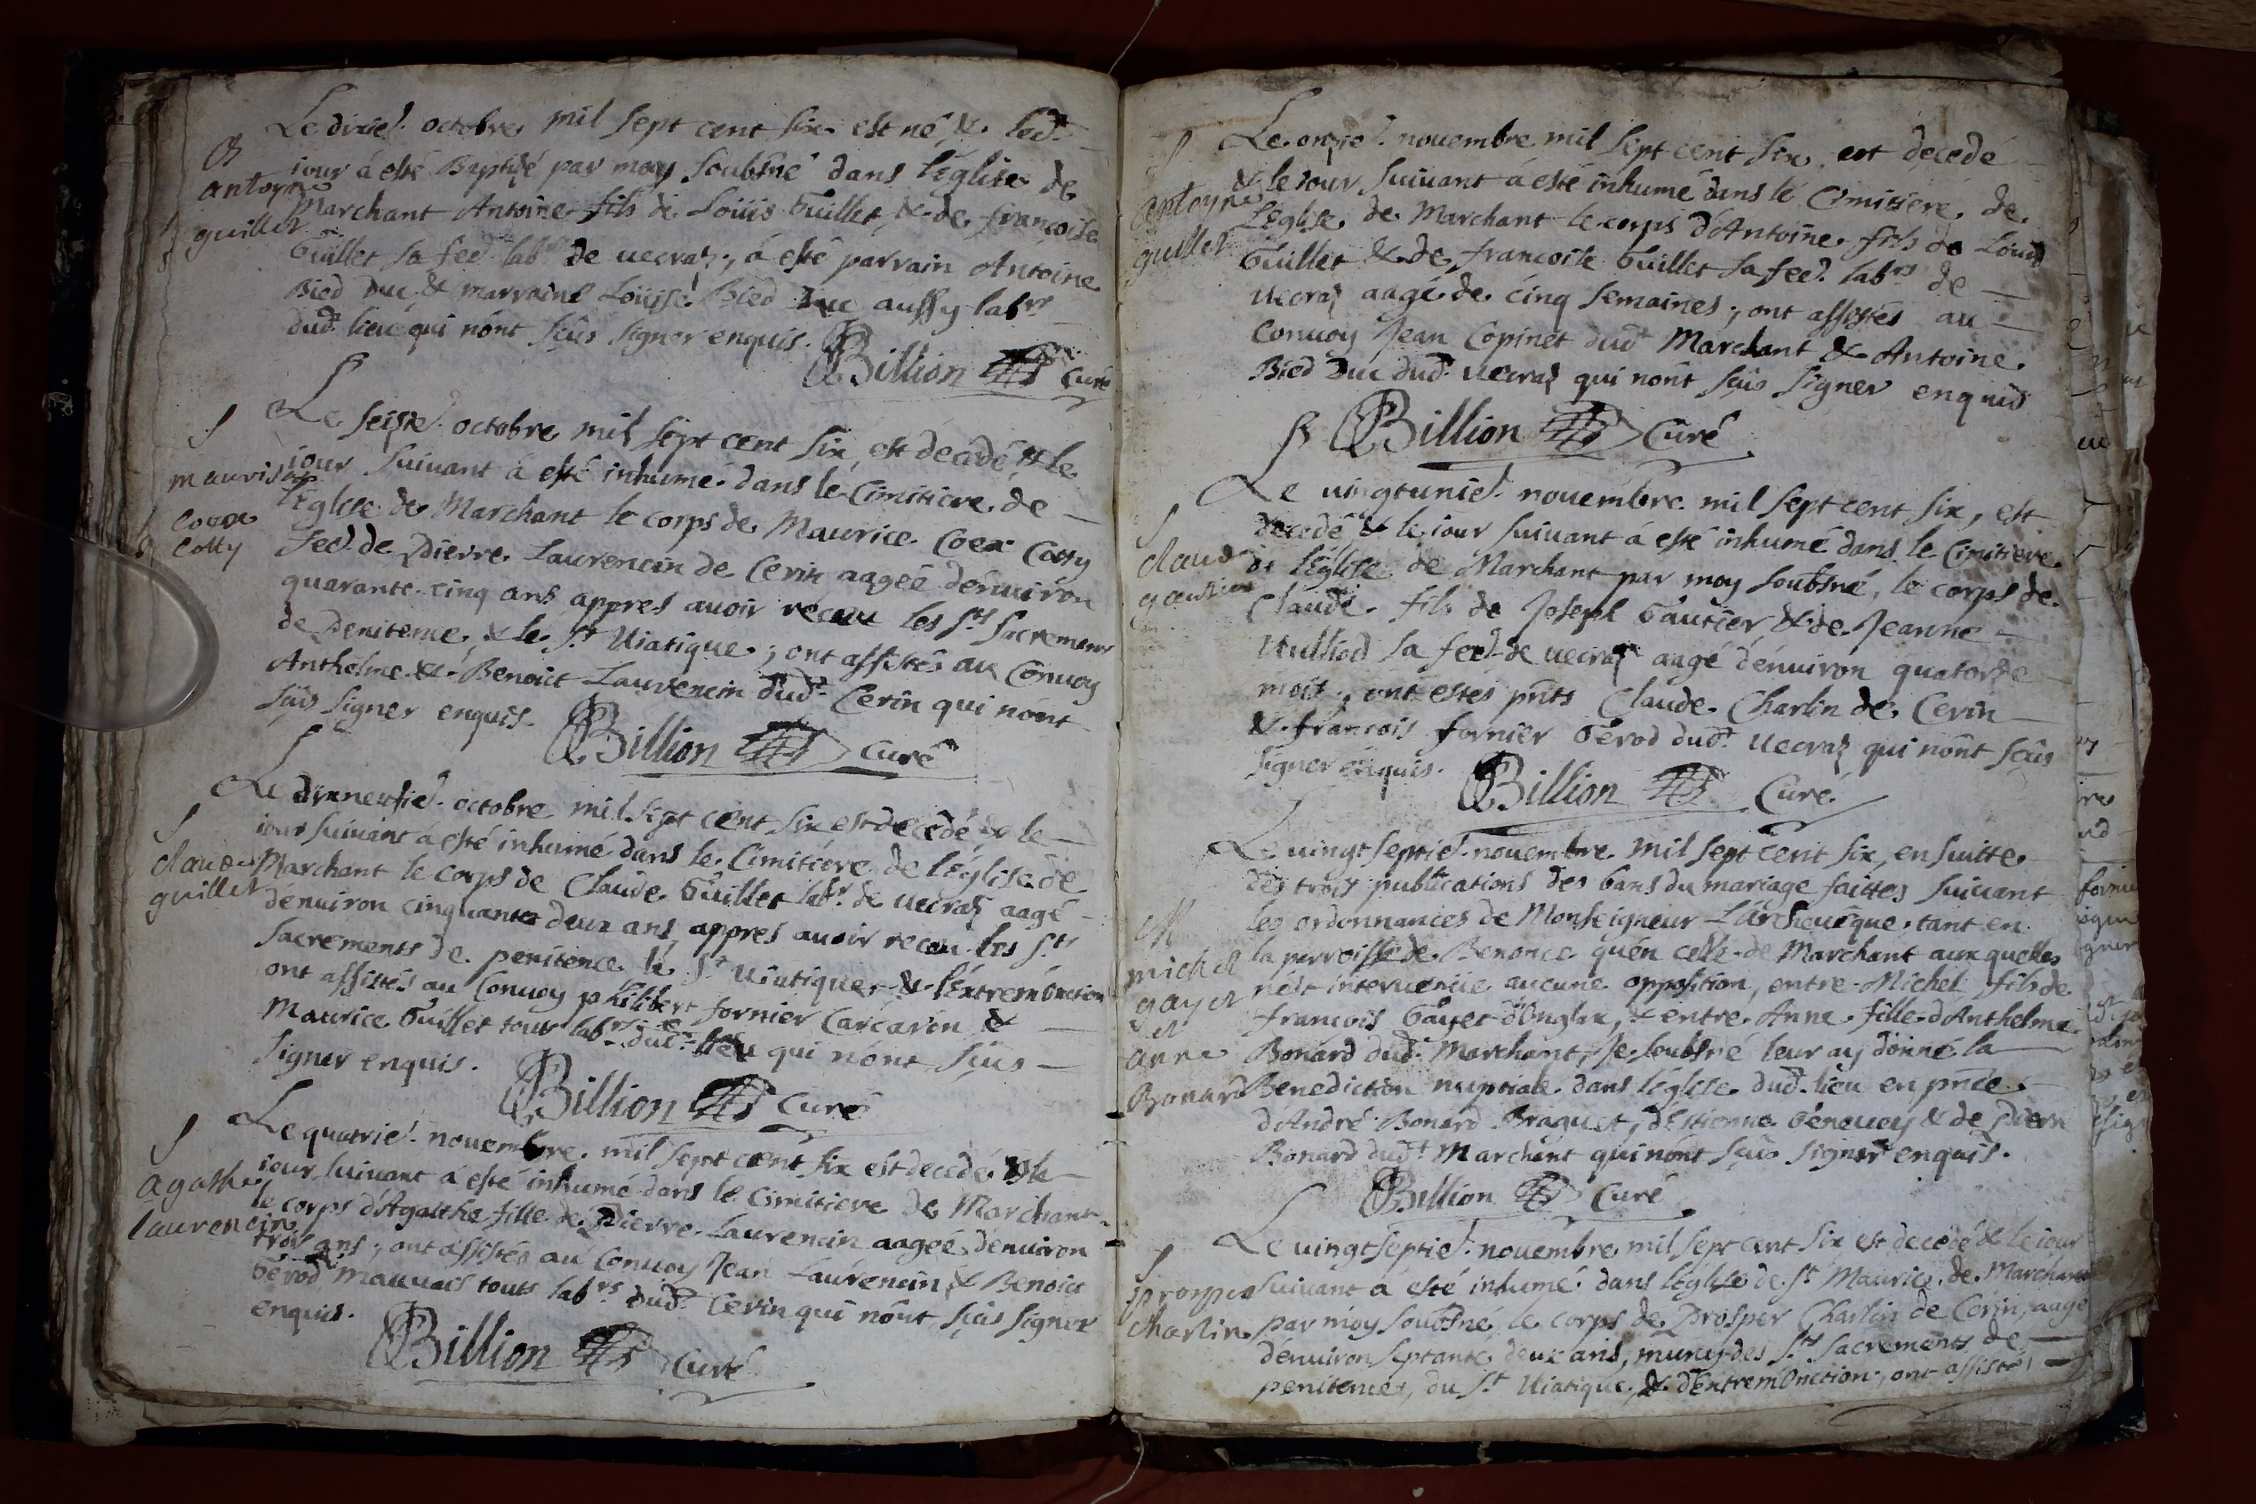 B
antoyne
guillet
Le dixie.^ octobre mil sept cent six est né & led.^
iour à esté Baptisé par moy soubsné dans l'église de
Marchant Antoine fils de Loüis Guillet & de françoise
Guillet sa fee.^ lab^r de vecraz, à esté parrain Antoine
Bied Duc & marraine Loüise Bied Duc aussy lab^rs
dud.^ lieu qui nónt sçûs signer enquis.
Billion Curé
S
maurise
Coex
Cotty
Le seizie.^ octobre mil sept cent six, est decedé & le
iour suivant à esté inhumé dans le Cimitiere de
l'Eglise de Marchant le corps de Maurice Coex Cotty
fee.^ de Pierre Laurencin de Cerin aageé dénuiron
quarante-cinq ans appres auoir receu les S^ts Sacremens
de Penitence, & le S^t Uiatique; ont assistés au Conuoy
Anthelme & Benoict Laurencin dud.^ Cerin qui nónt
sçûs signer enquis.
Billion Curé
S
claude
guillet
Le dixneufie.^ octobre mil sept cent six est decedé & le
iour suivant à esté inhumé dans le Cimitiere de l'église de
Marchant le corps de Claude Guillet lab^r. de vecraz aagé
dénuiron cinquante deux ans appres auoir receu les S^ts
sacrements de penitence le S^t Uiatique & l'éxtremónction
ont assistés au Conuoy philibert fornier Carcavin &
Maurice Guillet tous lab^rs dud.^ lieu qui nónt sçûs
signer enquis.
Billion Curé
S
agathe
laurencin
Le quatrie.^ nouembre mil sept cent six est decedé & le
iour suivant à esté inhumé dans le Cimitiere de Marchant
le corps d'Agatthe fille de Pierre Laurencin aageé dénuiron
trois ans; ont assistés au Conuoy Jean Laurencin & Benoict
Gérod Mauuais touts lab^rs dud.^ Cerin qui nónt sçûs signer
enquis.
Billion Curé
S
antoyne
guillet
Le onzie.^ nouembre mil sept cent six est decedé
& le iour suivant à esté inhumé dans le Cimitiere de
l'Eglise de Marchant le corps d'Antoine fils de Loüis
Guillet & de françoise Guillet sa fee.^ lab^rs de
vecraz aagé de cinq semaines; ont assistés au
Conuoy Jean Copinet dud^t Marchant & Antoine
Bied Duc dud.^ vecraz qui nónt sçûs signer enquis
Billion Curé
S
claude
gautier
Le uingtunie.^ nouembre mil sept cent six, est
decedé & le iour suivant à esté inhumé dans le Cimitiere
de l'Eglise de Marchant par moy soubsné, le corps de
Claude fils de Joseph Gautier & de Jeanne
Vulliod sa fee.^ de vecraz aagé dénuiron quatorze
mois, ont estés pñts Claude Charlin de Cerin
& françois fornier Gérod dud.^ vecraz qui nónt sçûs
signer enquis.
Billion Curé
M
michel
gayet
et
anne
Bonard
Le uingt septie.^ nouembre mil sept cent six, ensuitte
des trois publications des bans du mariage faittes suivant
les ordonnances de Monseigneur L'archeuêque, tant en
la parroisse de Benonce qu'en celle de Marchant aux quelles
n'est interuenüe aucune opposition, entre Michel fils de
françois Gayet d'Onglax, & entre Anne fille d'Anthelme
Bonard dud.^ Marchant, Je soubsné leur ay donné la
Benediction nuptiale dans l'église dud.^ lieu en pñce
d'André Bonard Braquet, d'Estienne Géneuey & de Pierre
Bonard dud^t Marchant qui nónt sçûs signer enquis.
Billion Curé
S
prosper
charlin
Le uingtseptie.^ nouembre mil sept cent six est decedé & le iour
suivant à esté inhumé dans l'église de S^t Maurice de Marchant
par moy soubsné, le corps de Prosper Charlin de Cerin, aagé
denuiron septante deux ans, muny des S^ts Sacrements de
penitence, du S^t Uiatique, & d'Extremónction, ont assisté